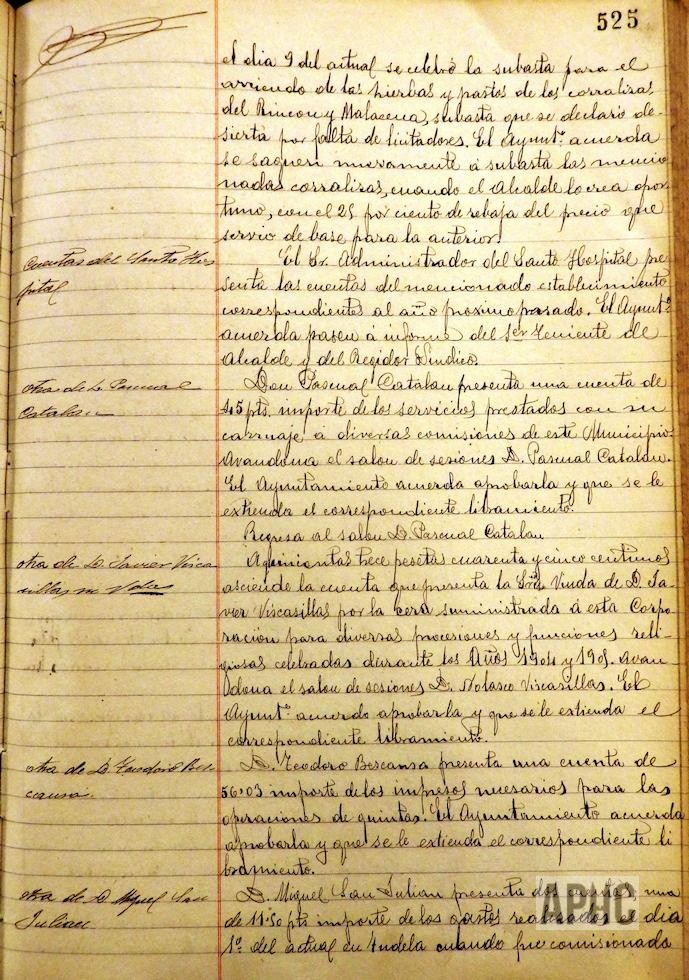 525
el dia 9 del actual se celebró la subasta para el
arriendo de las hierbas y pastos de los corralizas
del Rincon y Malacena, subasta que se declaró de-
sierta por falta de licitadores. El Ayuntº acuerda
se saquen nuevamente á subasta las mencio
nadas corralizas, cuando el Alcalde lo crea opor-
tuno, con el 25 por ciento de rebaja del precio que
servio de base para la anterior.
Cuentas del Santo Hos
pital
El Sr. Administrador del Santo Hospital pre
senta las cuentas del mencionado establecimiento
correspondientes al año proximo pasado. El Ayuntº
acuerda pasen á informe del 1er Teniente de
Alcalde y del Regidor Sindico.
otra de D. Pascual
Catalan
Don Pascual Catalan presenta una cuenta de
45 pts. importe de los servicios prestados con su
carruaje á diversas comisiones de este Municipio.
Avandona el salon de sesiones D. Pascual Catalan.
El Ayuntamiento acuerda aprobarla y que se le
extienda el correspondiente libramiento.
Regresa al salon D. Pascual Catalan
otra de D. Javier Visca
sillas su Vda
A quinientas trece pesetas cuarenta y cinco centimos
asciende la cuenta que presenta la Sra Viuda de D. Ja-
vier Viscasillas por la cera suministrada á esta Corpo-
racion para diversas procesiones y funciones reli-
giosas celebradas durante los Años 1904 y 1905. Avan
dona el salon de sesiones D. Nolasco Viscasillas. El
Ayuntº acuerdo aprobarla y que se le extienda el
correspondiente libramiento.
otra de D. Teodoro Bes
cansa.
D. Teodoro Bescansa presenta una cuenta de
56'03 importe de los impresos necesarios para las
operaciones de quintas. El Ayuntamiento acuerda
aprobarla y que se le extienda el correspondiente li
bramiento.
otra de D. Miguel San
Julian
D. Miguel San Julian presenta dos cuentas, una
de 11'50 pts importe de los gastos realizados el dia
1º del actual en Tudela cuando fue comisionado
APHC